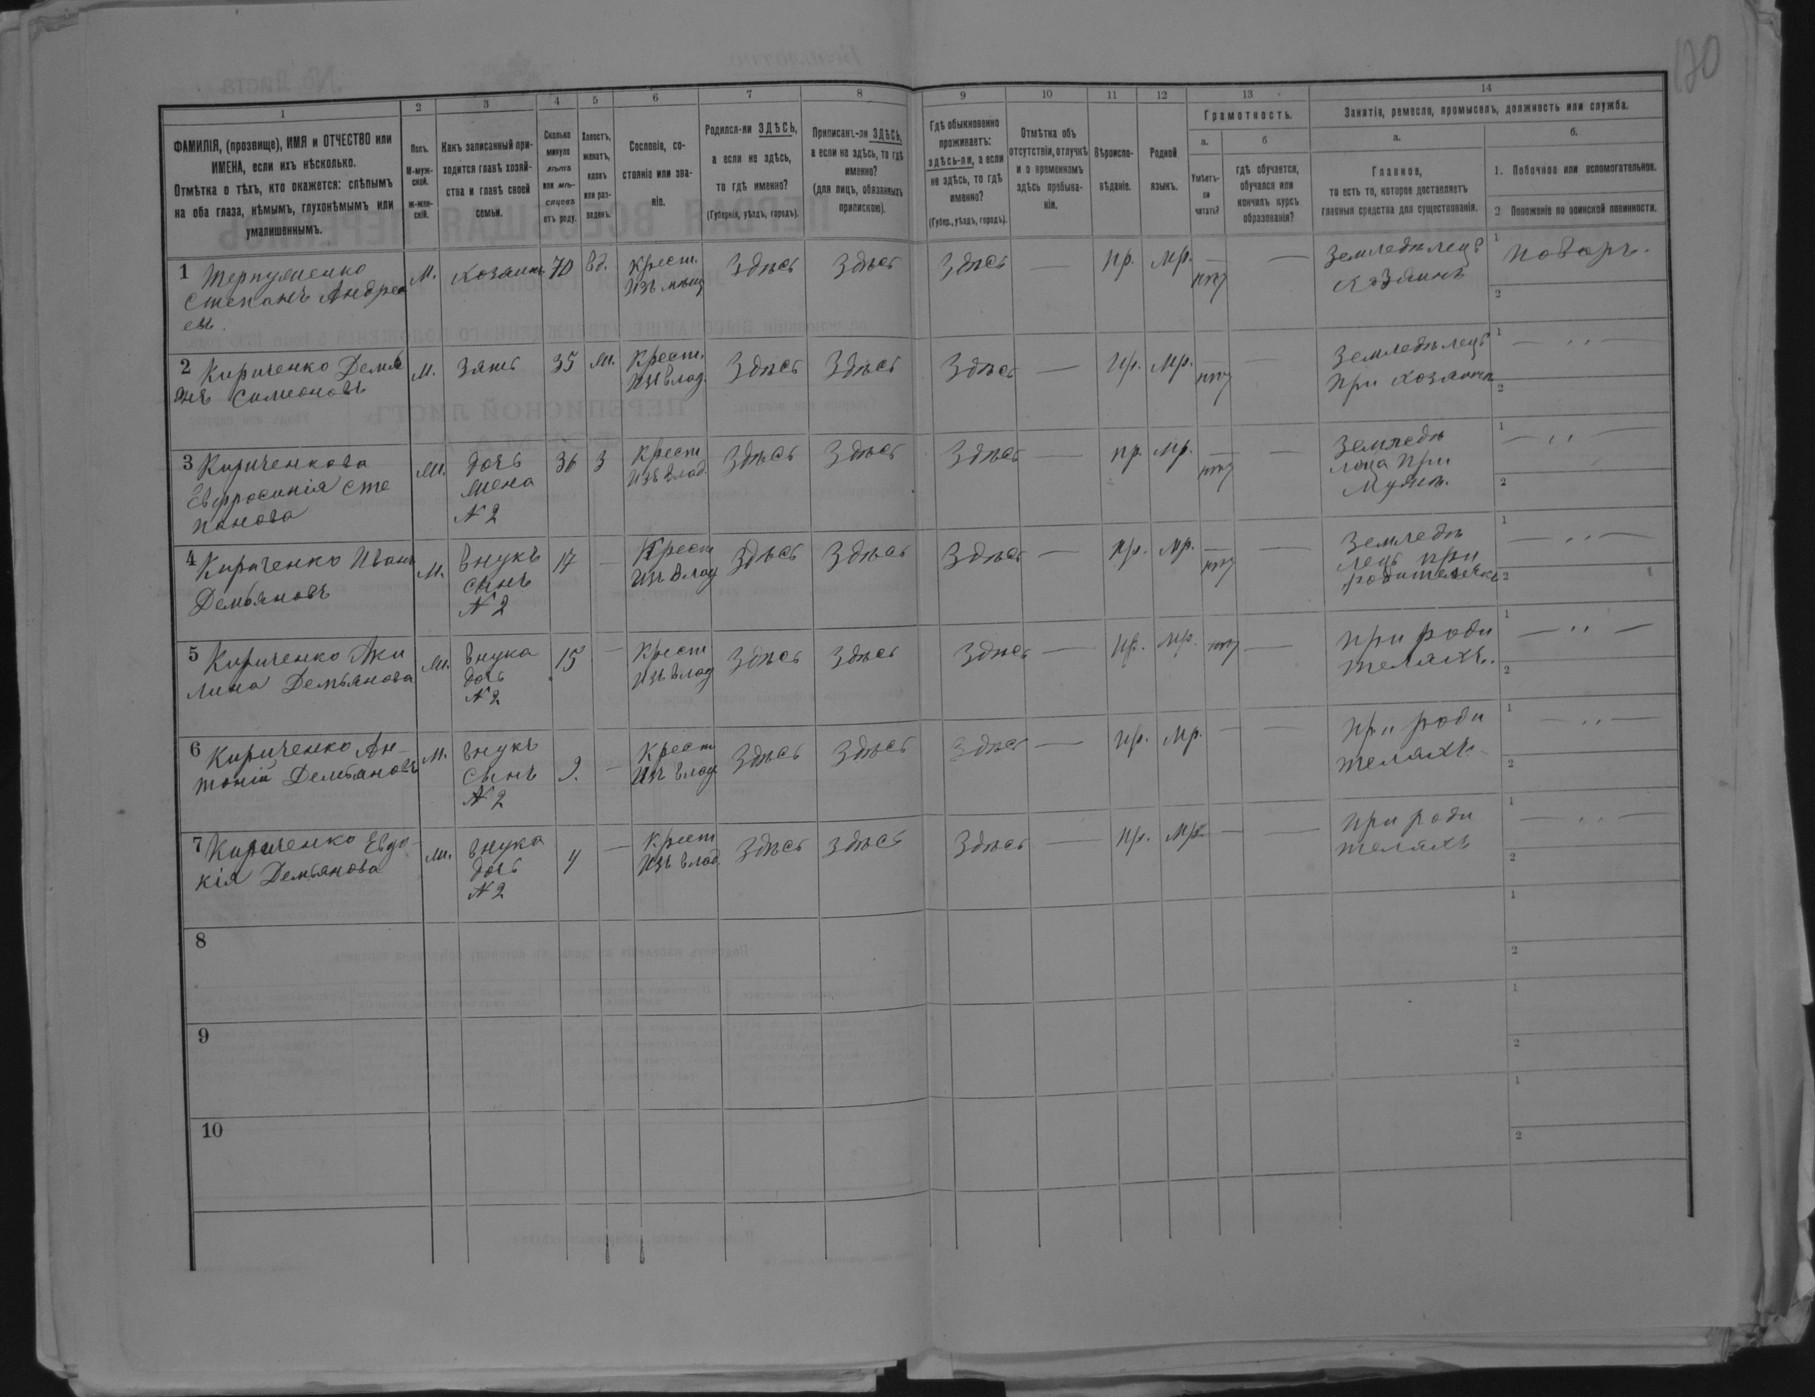 170
1 2 3 4 5 6 7 8 9 10 11 12 13 14
ФАМИЛІЯ, (прозвище), ИМЯ и ОТЧЕСТВО или
ИМЕНА, если ихъ нѣсколько.
Отмѣтка о тѣхъ, кто окажется: слѣпымъ
на оба глаза, нѣмымъ, глухонѣмымъ или
умалишеннымъ.
Полъ.
М-муж-
ской.
Ж-жен-
скій.
Какъ записанный при-
ходится главѣ хозяй-
ства и главѣ своей
семьи.
Сколько
минуло
лѣтъ
или мѣ-
сяцевъ
отъ роду.
Холостъ,
женатъ,
вдовъ
или раз-
веденъ.
Сословіе, со-
стояніе или зва-
ніе.
Родился-ли ЗДѢСЬ,
а если не здѣсь,
то гдѣ именно?
(Губернія, уѣздъ, городъ).
Приписанъ-ли ЗДѢСЬ,
а если не здѣсь, то гдѣ
именно?
(для лицъ, обязанныхъ
припискою).
Гдѣ обыкновенно
проживаетъ:
здѣсь-ли, а если
не здѣсь, то гдѣ
именно?
(Губер., уѣздъ, городъ).
Отмѣтка объ
отсутствіи, отлучкѣ
и о временномъ
здѣсь пребыва-
ніи.
Вѣроиспо-
вѣданіе.
Родной
языкъ.
Грамотность.
а. б
Умѣетъ-
ли
читать?
гдѣ обучается,
обучался или
кончилъ курсъ
образованія?
Занятіе, ремесло, промыселъ, должность или служба.
а. б.
Главное,
то есть то, которое доставляетъ
главныя средства для существованія.
1. Побочное или вспомогательное.
2 Положеніе по воинской повинности.
1 Терпуменко
Степанъ Андрее
евъ.
М. хозяинъ 70 Вд. Крест. Здѣсь Здѣсь Здѣсь — пр. мр. — — Земледѣлецъ 1 поваръ.
хозяинъ 2
2 Кириченко Демья
янъ Симеоновъ
М. Зять 35 Ж. Крест. Здѣсь Здѣсь Здѣсь — пр. мр. — — Земледѣлецъ 1 — ,, —
изъ влад. При хозяинѣ 2
3 Кириченкова
Евфросинія Сте
панова
дочь 36 З Крест Здѣсь Здѣсь Здѣсь — пр. мр. — — Земледѣ 1 — ,, —
жена изъ влад. лица При
№ 2 Мужѣ. 2
4 Кириченко Иванъ
Демьяновъ
М. внукъ 17 — Крест Здѣсь Здѣсь Здѣсь — пр. мр. — — Земледѣ 1 — ,, —
сынъ изъ влад лецъ при
№ 2 родителяхъ 2
5 Кириченко Аки
лина Демьянова
внука 15 — Крест Здѣсь Здѣсь Здѣсь — пр. мр. — При роди 1 — ,, —
дочь изъ влад теляхъ.
№ 2 2
6 Кириченко Ан-
тоній Демьяновъ
М. внукъ 9. — Крест Здѣсь Здѣсь Здѣсь — пр. мр. — — При роди 1 — ,, —
сынъ изъ влад теляхъ.
№ 2 2
7 Кириченко Евдо-
кія Демьянова
внука 4 — Крест Здѣсь Здѣсь Здѣсь — пр. мр. — — При роди 1 — ,, —
дочь изъ влад теляхъ
№ 2 2
8 1
2
9 1
2
10 1
2